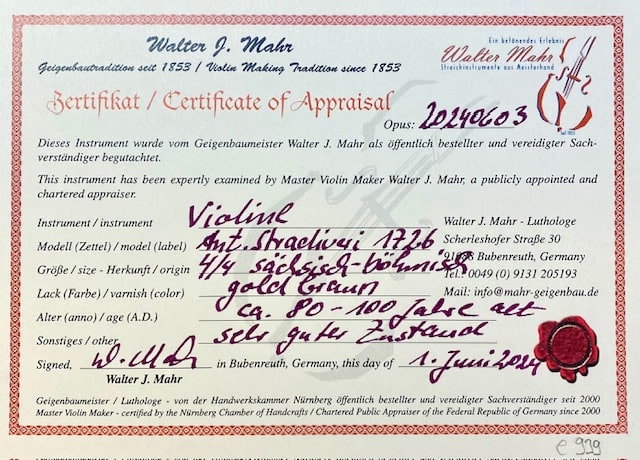 Walter J. Mahr
Geigenbautradition seit 1853 / Violin Making Tradition since 1853
Ein betönendes Erlebnis
Walter Mahr
Streichinstrumente aus Meisterhand
Seit 1853
Zertifikat / Certificate of Appraisal
Opus: 20240603
Dieses Instrument wurde vom Geigenbaumeister Walter J. Mahr als öffentlich bestellter und vereidigter Sach-
verständiger begutachtet.
This instrument has been expertly examined by Master Violin Maker Walter J. Mahr, a publicly appointed and
chartered appraiser.
Instrument / instrument Violine
Modell (Zettel) / model (label) Ant. Stradivari 1726
Größe / size - Herkunft / origin 4/4 sächsisch-böhmisch
Lack (Farbe) / varnish (color) goldbraun
Alter (anno) / age (A.D.) ca. 80-100 Jahre alt
Sonstiges / other sehr guter Zustand
Walter J. Mahr - Luthologe
Scherleshofer Straße 30
91088 Bubenreuth, Germany
Tel.: 0049 (0) 9131 205193
Mail: info@mahr-geigenbau.de
Signed, W. Mahr in Bubenreuth, Germany, this day of 1. Juni 2024
Walter J. Mahr
Geigenbaumeister / Luthologe - von der Handwerkskammer Nürnberg öffentlich bestellter und vereidigter Sachverständiger seit 2000
Master Violin Maker - certified by the Nürnberg Chamber of Handcrafts / Chartered Public Appraiser of the Federal Republic of Germany since 2000
e 939